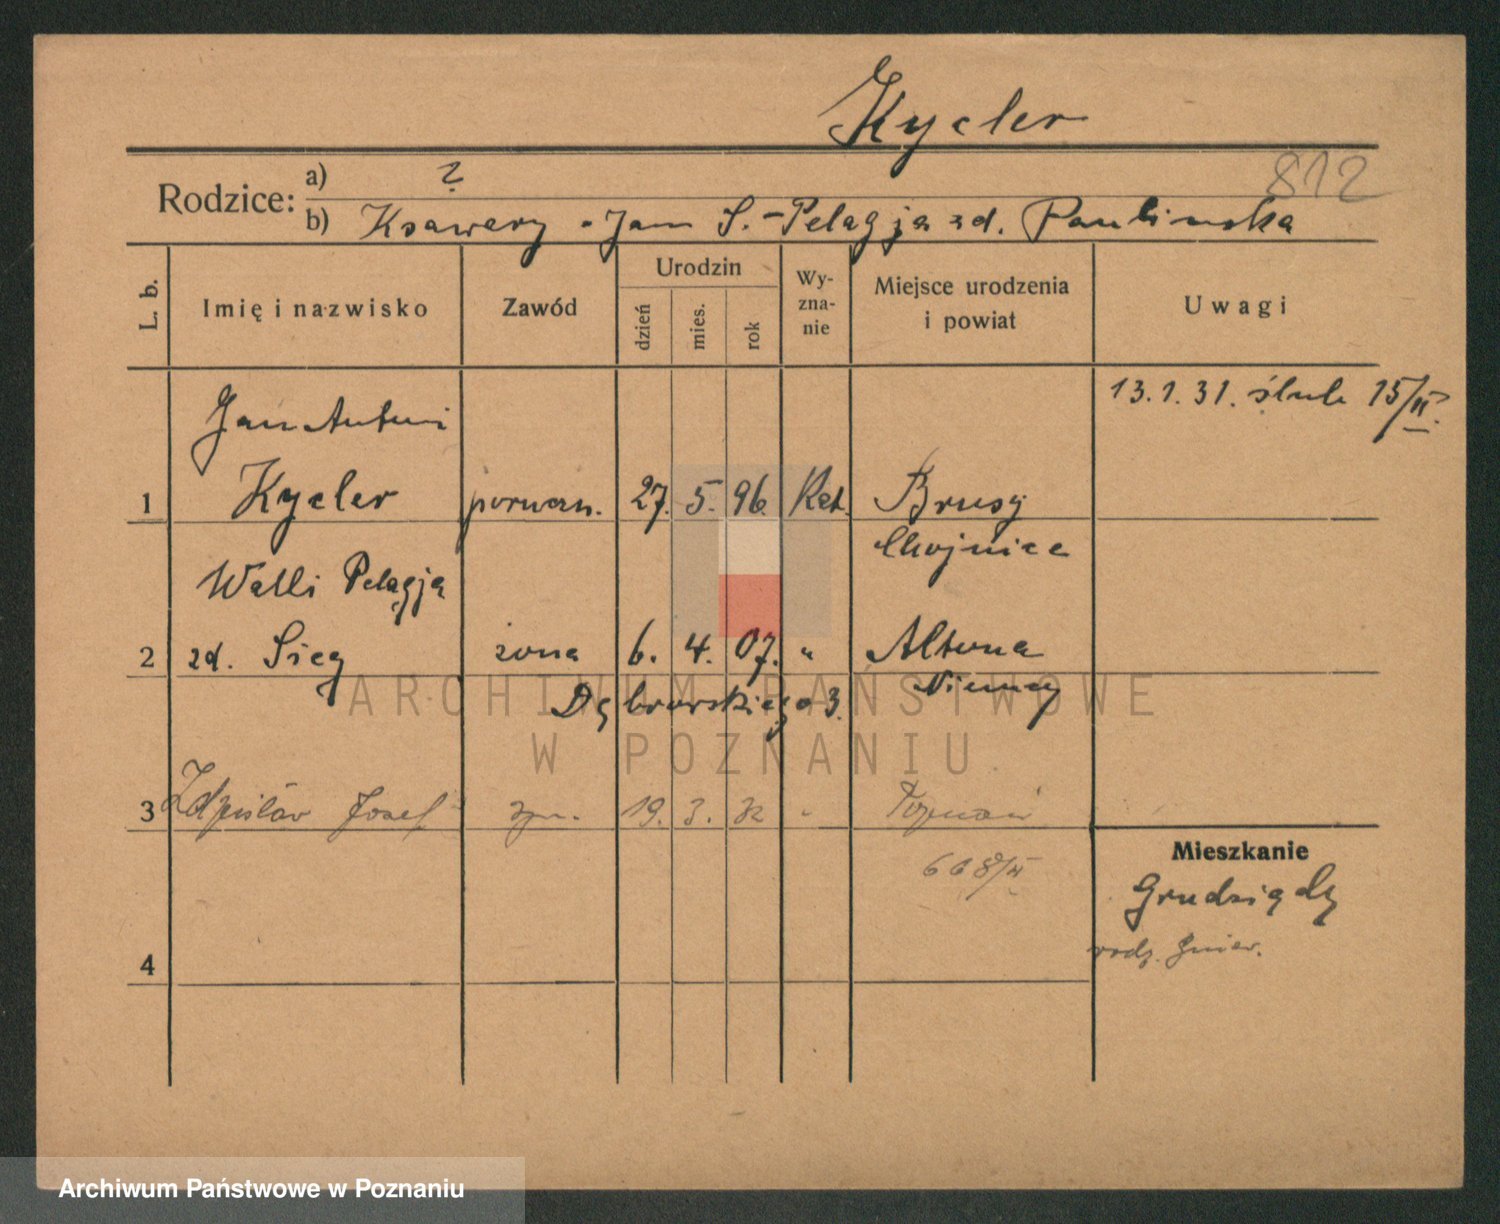 Kycler
812
Rodzice: a) ?
b) Ksawery - Jan S. - Pelagja zd. Paulinska
L. b. Imię i nazwisko Zawód Urodzin dzień mies. rok Wy-zna-nie Miejsce urodzenia i powiat Uwagi
13.1.31. ślub 15/II.
Jan Antoni
1 Kycler 27. 5. 96. Kat. Brusy
Chojnice
Walli Pelagja
2 zd. Sieg żona 6. 4. 07. " Altona
Dąbrowskiego 3. Niemcy
3 Zdzisław Josef 19. 3. 32 " Poznań
Mieszkanie
608/II
Grudziądz
rodz. Gniew.
4
ARCHIWUM PAŃSTWOWE
W POZNANIU
Archiwum Państwowe w Poznaniu